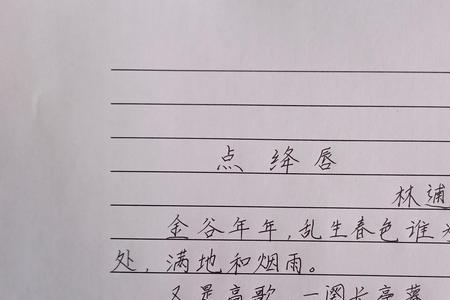 点 绛 唇
林逋
金谷年年,乱生春色谁
处,满地和烟雨。
又是离歌 一阕长亭暮